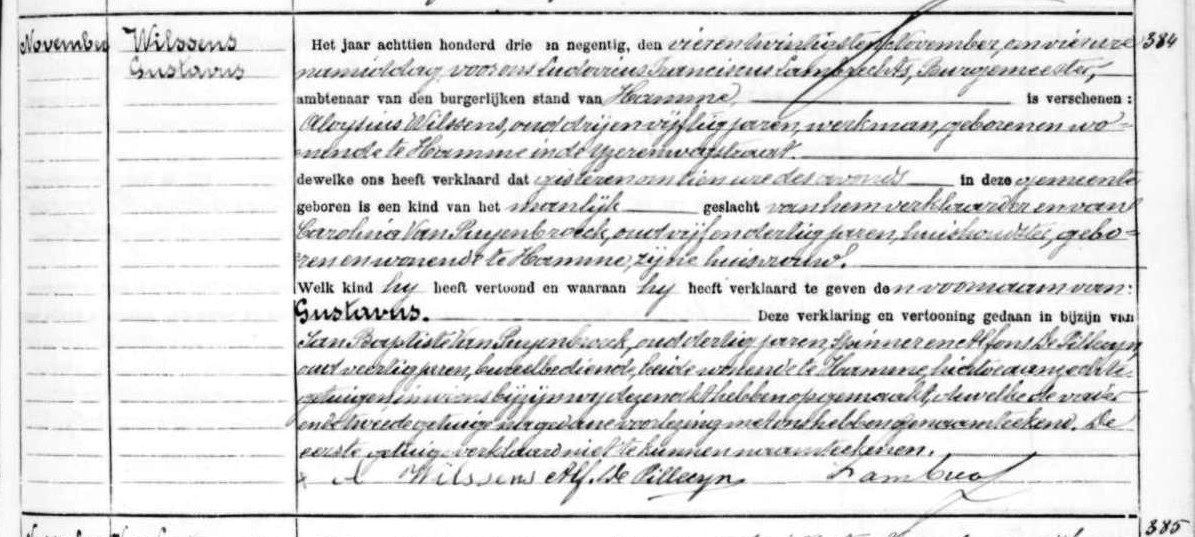 November Wilssens Het jaar achttien honderd drie en negentig, den vierentwintigsten November, om vier ure 384
Gustavus namiddag, voor ons Ludovicus Franciscus Lambrechts, Burgemeester,
ambtenaar van den burgerlijken stand van Hamme, is verschenen :
Aloysius Wilssens, oud drij en vijftig jaren, werkman, geboren en wo-
nende te Hamme in de Yzerenwegstraat.
dewelke ons heeft verklaard dat gisteren om tien ure des avonds in deze gemeente
geboren is een kind van het manlijk geslacht van hem verklaarder en van
Carolina Van Puyenbroeck, oud vijf en dertig jaren, huishoudster, gebo-
ren en wonende te Hamme, zijne huisvrouw.
Welk kind hy heeft vertoond en waaraan hy heeft verklaard te geven den voornaam van:
Gustavus. Deze verklaring en vertooning gedaan in bijzijn van
Jan Baptiste Van Puyenbroeck, oud dertig jaren, spinner en Alfons De Pillecyn,
oud veertig jaren, bureelbediende, beide wonende te Hamme, hiertoe aanzochte
getuigen in wiens bijzijn wy deze nakt hebben opgemaakt, dewelke de vader
en tweede getuige na gedane voorlezing met ons hebben genaamteekend. De
eerste getuige verklaard niet te kunnen naamteekenen.
A Wilssens Alf. De Pillecyn Lambrec
385